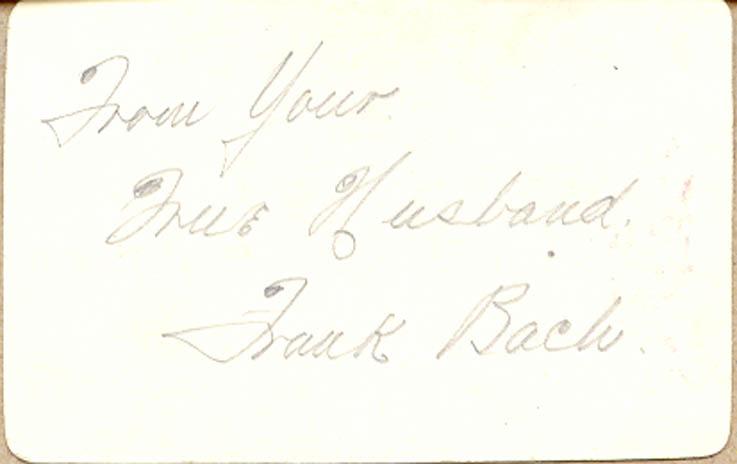 From Your
True Husband.
Frank Bach.